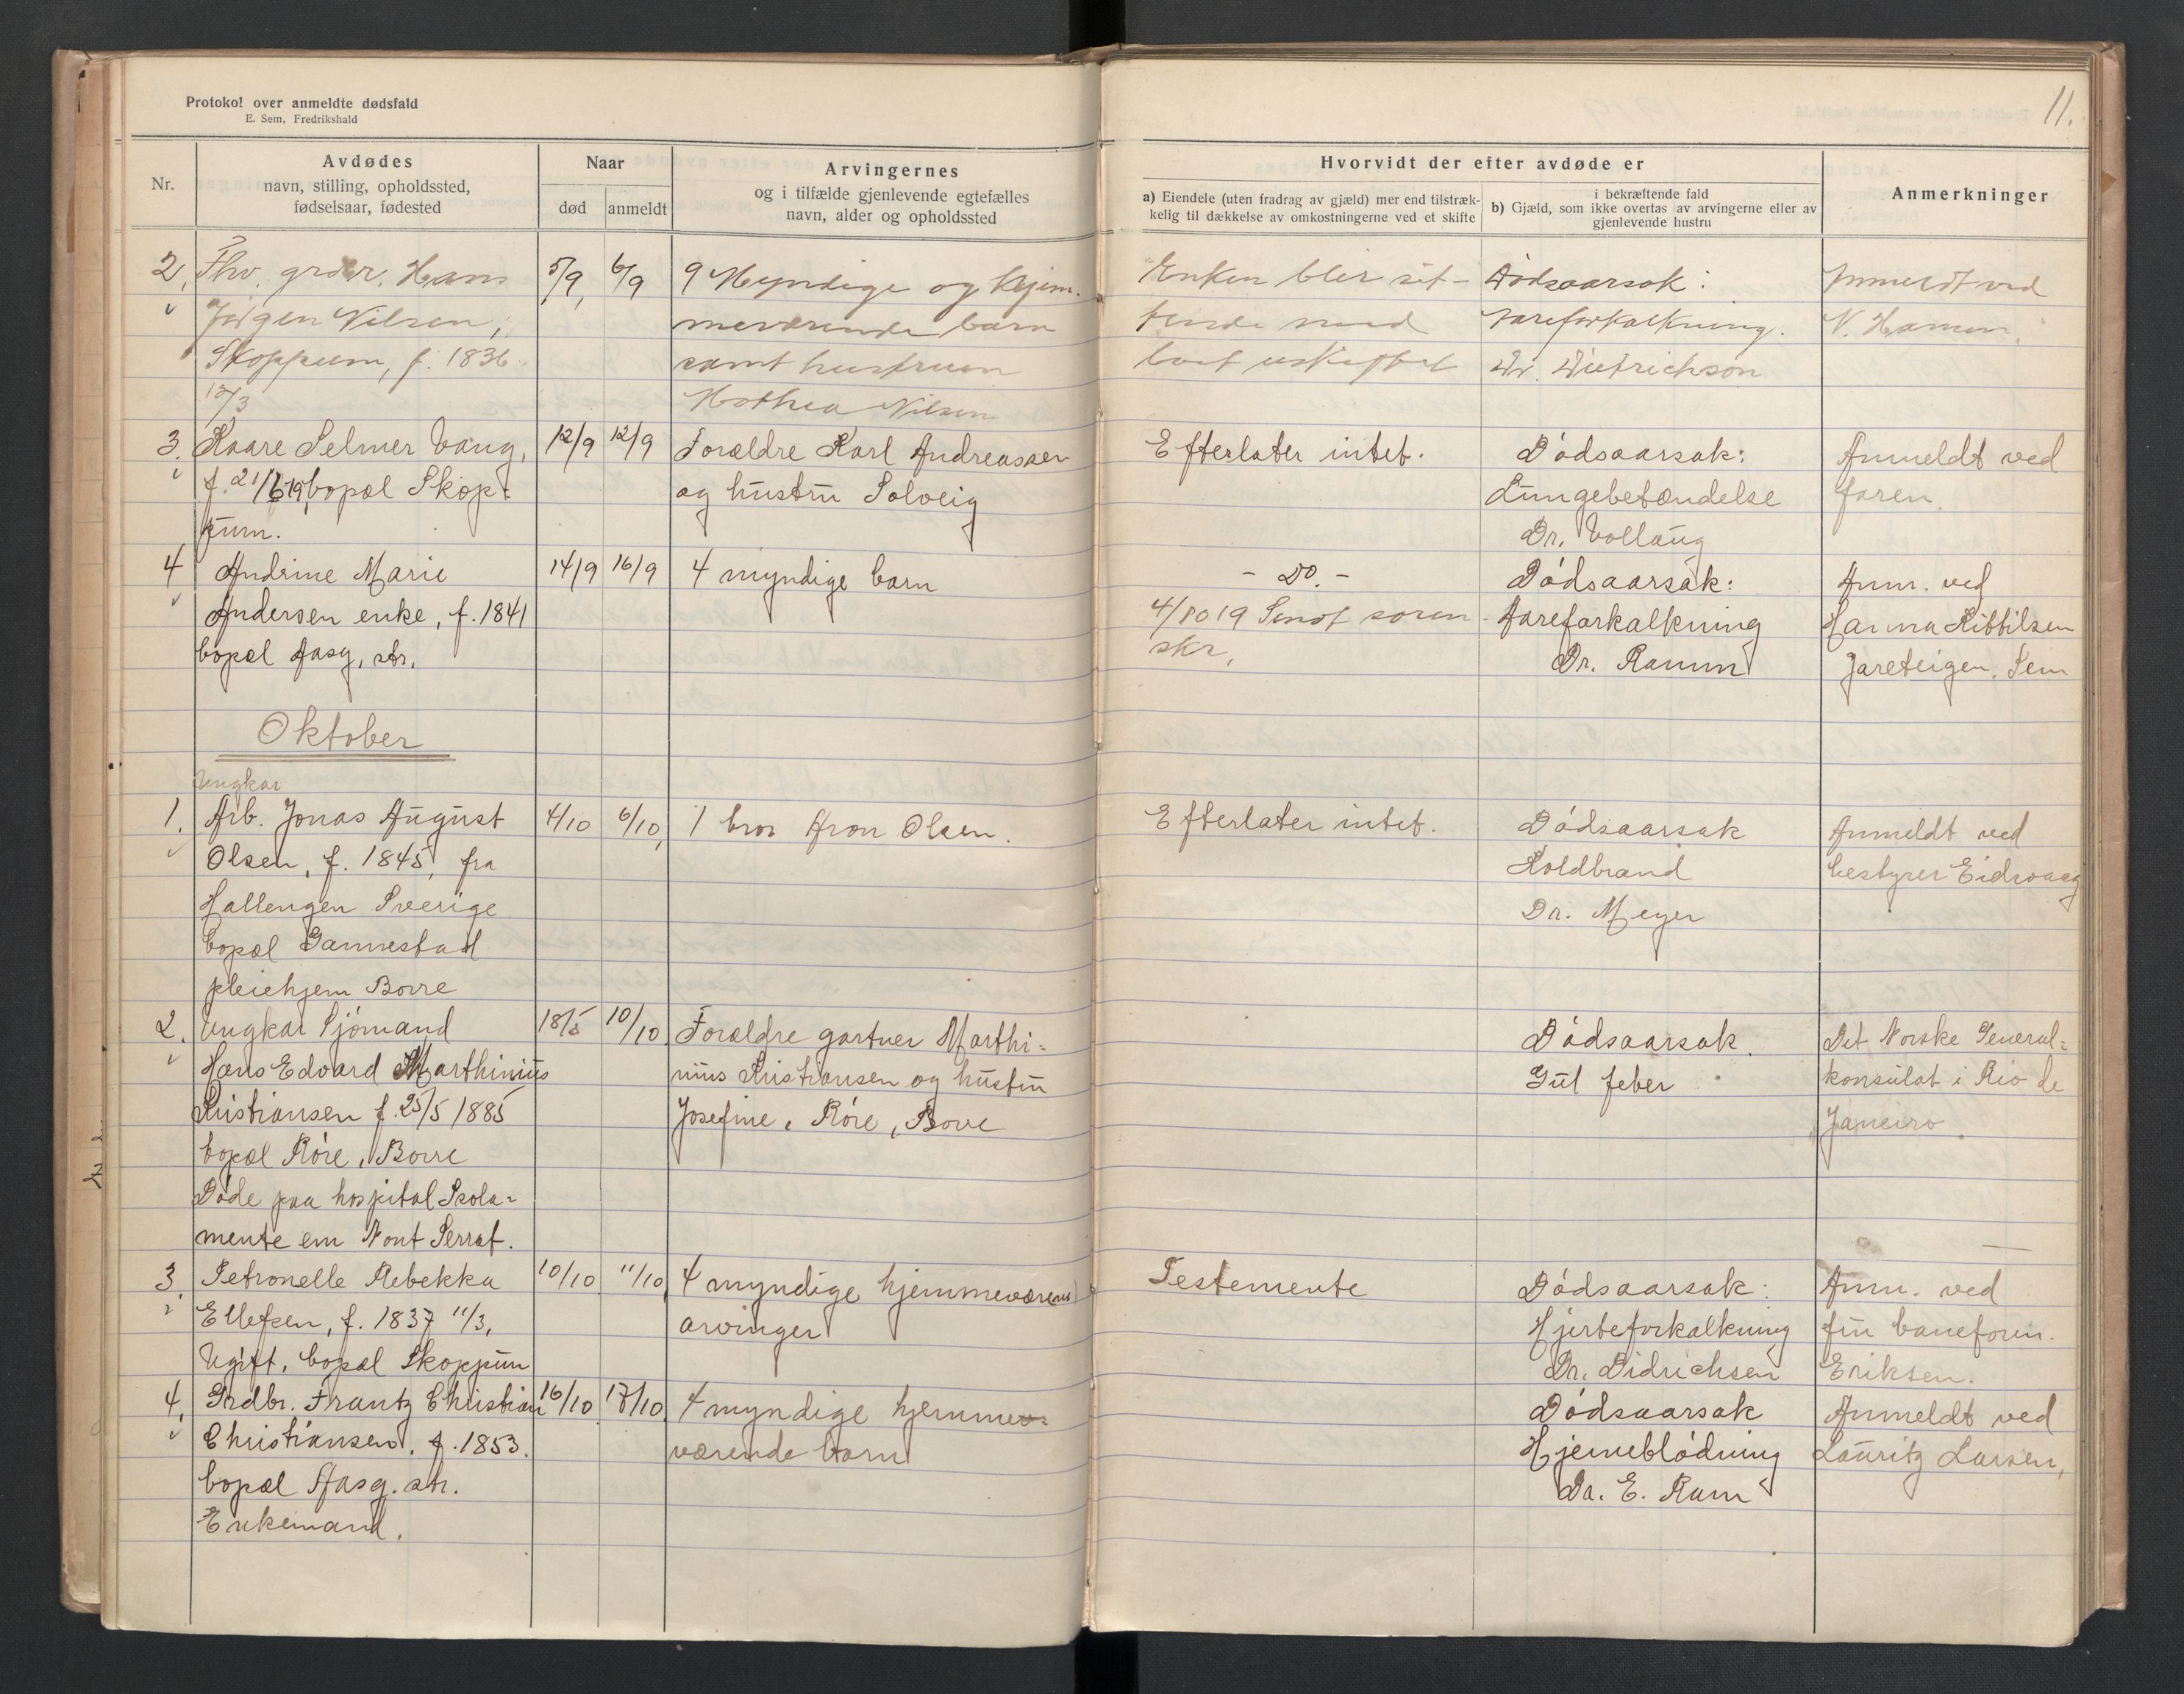 Protokol over anmeldte dødsfald
E. Sem, Fredrikshald
11.
Nr.
Avdødes
navn, stilling, opholdssted,
fødselsaar, fødested
Naar
død
anmeldt
Arvingernes
og i tilfælde gjenlevende egtefælles
navn, alder og opholdssted
Hvorvidt der efter avdøde er
a) Eiendele (uten fradrag av gjæld) mer end tilstræk-
kelig til dækkelse av omkostningerne ved et skifte
i bekræftende fald
b) Gjæld, som ikke overtas av arvingerne eller av
gjenlevende hustru
Anmerkninger
2, Fhv. grdbr. Hans
Jørgen Nilsen,
Skoppum, f. 1836
12/3
5/9, 6/9
9 Myndige og hjem-
meværende barn
samt hustruen
Mathea Nilsen
Enken blir sit-
tende med
boet uskiftet
Dødsaarsak:
Aareforkalkning.
Dr. Dietrichson
Anmeldt ved
N. Hansen.
3. Kaare Selmer Vaug,
f. 21/6 19, bopæl Skop-
pum.
12/9 12/9
Forældre Karl Andreassen
og hustru Solveig
Efterlater intet.
Dødsaarsak:
Lungebetændelse
Dr. Vollaug
Anmeldt ved
faren.
4 Andrine Marie
Andersen enke, f. 1841
bopæl Aasg. str.
14/9 16/9
4 myndige barn
- Do. -
4/10 19 Sendt soren-
skr.
Dødsaarsak:
Aareforkalkning
Dr. Ramm
Anm. ved
Hanna Kittilsen
Jareteigen, Sem
Oktober
Ungkar
1. Arb. Jonas August
Olsen, f. 1845, fra
Hallengen Sverige
bopæl Gannestad
pleiehjem Borre
4/10 6/10,
1 bror Aron Olsen.
Efterlater intet.
Dødsaarsak
Koldbrand
Dr. Meyer
Anmeldt ved
bestyrer Eidsvaag
2. Ungkar Sjømand
Hans Edvard Marthinius
Kristiansen f. 25/5 1885
bopæl Røre, Borre
Døde paa hospital Isola-
mente em Mont Serrat.
18/5 10/10
Forældre gartner Marthi-
nius Kristiansen og hustru
Josefine, Røre, Borre
Dødsaarsak.
Gul feber
Det Norske General-
konsulat i Rio de
Janeiro.
3. Petronelle Rebekka
Ellefsen, f. 1837 11/3,
Ugift, bopæl Skoppum
10/10 11/10,
4 myndige hjemmeværend
arvinger
Testemente
Dødsaarsak:
Hjerteforkalkning
Dr. Didrichsen
Anm. ved
fru baneform.
Eriksen.
4, Grdbr. Frantz Christian
Christiansen, f. 1853.
bopæl Aasg. str.
Enkemand.
16/10 17/10
4 myndige hjemme-
værende barn
Dødsaarsak
Hjerneblødning
Dr. E. Ram
Anmeldt ved
Lauritz Larsen,